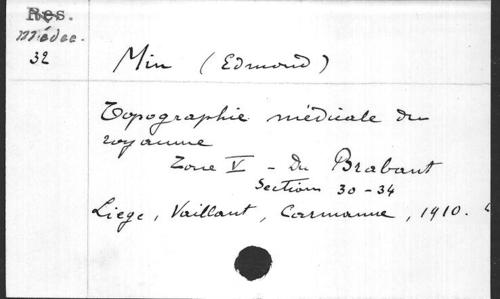 Res.
Médec.
32
Min (Edmond)
Topographie médicale du
royaume
Zone V - Du Brabant
Sections 30-34
Liege, Vaillant, Carmanne, 1910.